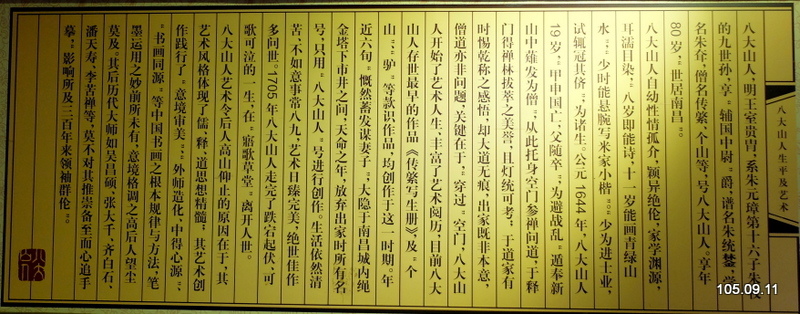 八大山人生平及艺术
八大山人，明王室贵胄，系朱元璋第十六子朱权
的九世孙，享“辅国中尉”爵，谱名朱统𨨗，学
名朱耷，僧名传綮，个山等，号八大山人。享年
80岁，世居南昌。
八大山人自幼性情孤介，颖异绝伦，家学渊源，
耳濡目染，“八岁即能诗，十一岁能画青绿山
水”，“少时能悬腕写米家小楷”。“少为进士业，
试辄冠其侪”，为诸生。公元1644年，八大山人
19岁，“甲申国亡，父随卒”，为避战乱，“遁奉新
山中薙发为僧”，从此托身空门参禅问道，于释
门得禅林拔萃之美誉，且灯统可考；于道家有
时惕乾称之感悟，却大道无痕。出家既非本意，
僧道亦非问题，关键在于，“穿过”空门，八大山
人开始了艺术人生，丰富了艺术阅历，目前八大
山人存世最早的作品《传綮写生册》，及“个
山”，“驴”等款识作品，均创作于这一时期。年
近六旬，“慨然蓄发谋妻子”，大隐于南昌城内绳
金塔下市井之间。天命之年，放弃出家时所有名
号，只用“八大山人”号进行创作。生活依然清
苦，不如意事常八九，艺术日臻完美，绝世佳作
多问世。1705年八大山人走完了跌宕起伏、可
歌可泣的一生，在“寤歌草堂”离开人世。
八大山人艺术令后人高山仰止的原因在于，其
艺术风格体现了儒、释、道思想精髓；其艺术创
作践行了“意境审美”、“外师造化，中得心源”、
“书画同源”等中国书画之根本规律与方法，笔
墨运用之妙前所未有，意境格调之高后人望尘
莫及。其后历代大师如吴昌硕、张大千、齐白石、
潘天寿、李苦禅等，莫不对其推崇备至而心追手
摹，“影响所及三百年来领袖群伦”。
105.09.11